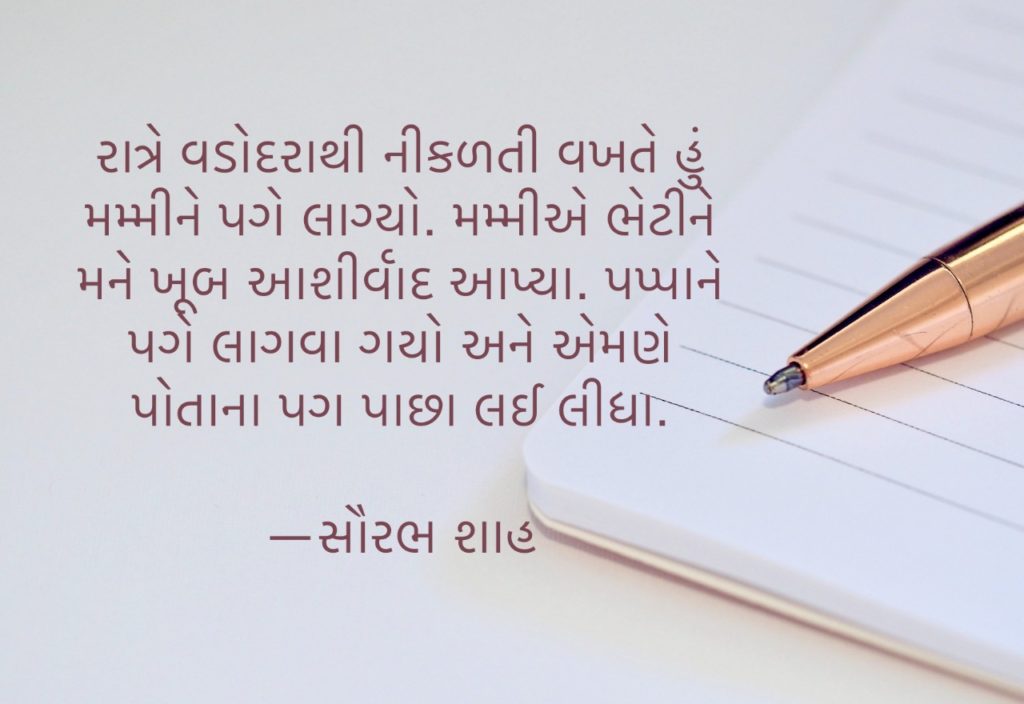 રાત્રે વડોદરાથી નીકળતી વખતે હું
મમ્મીને પગે લાગ્યો. મમ્મીએ ભેટીને
મને ખૂબ આશીર્વાદ આપ્યા. પપ્પાને
પગે લાગવા ગયો અને એમણે
પોતાના પગ પાછા લઈ લીધા.
—સૌરભ શાહ